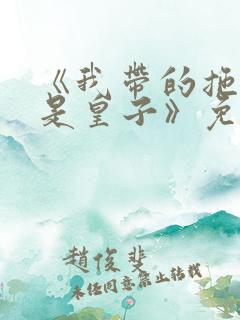 《我带的拖
是皇子》免
赵俊斐
未经同意禁止转载